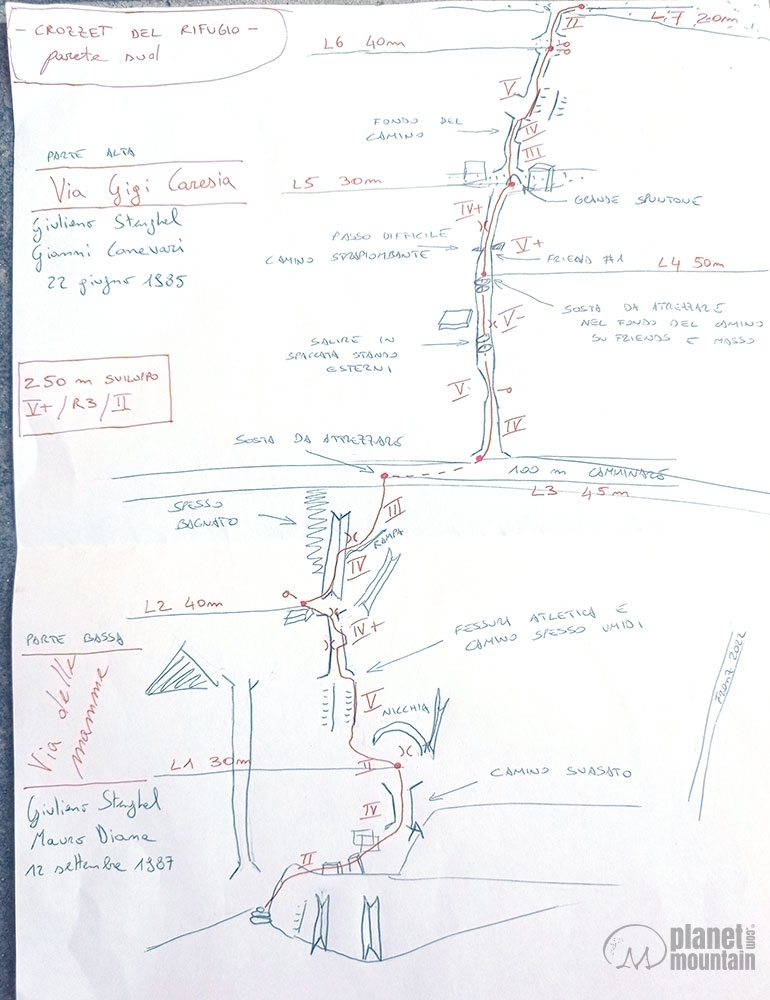 - CROZZET DEL RIFUGIO -
parete sud
II
L7 20m
L6 40m
V
FONDO DEL
CAMINO
IV
III
PARTE ALTA
Via Gigi Caresia
Giuliano Stenghel
Gianni Canevari
22 giugno 1985
L5 30m
GRANDE SPUNTONE
IV+
PASSO DIFFICILE
CAMINO STRAPIOMBANTE
V+
FRIEND #1
L4 50m
SOSTA DA ATREZZARE
NEL FONDO DEL CAMINO
SU FRIENDS E MASSO
V-
SALIRE IN
SPACCATA STANDO
ESTERNI
250 m SVILUPPO
V+/R3/II
V
IV
SOSTA DA ATREZZARE
100 m CAMMINARE
L3 45m
SPESSO
BAGNATO
III
RAMPA
IV
L2 40m
IV+
FESSURA ATLETICA E
CAMINO SPESSO UMIDI
PARTE BASSA
Via delle
mamme
Giuliano Stenghel
Mauro Diana
12 settembre 1987
V
NICCHIA
L1 30m
II
CAMINO SVASATO
IV
II
2022
planet
mountain
.com